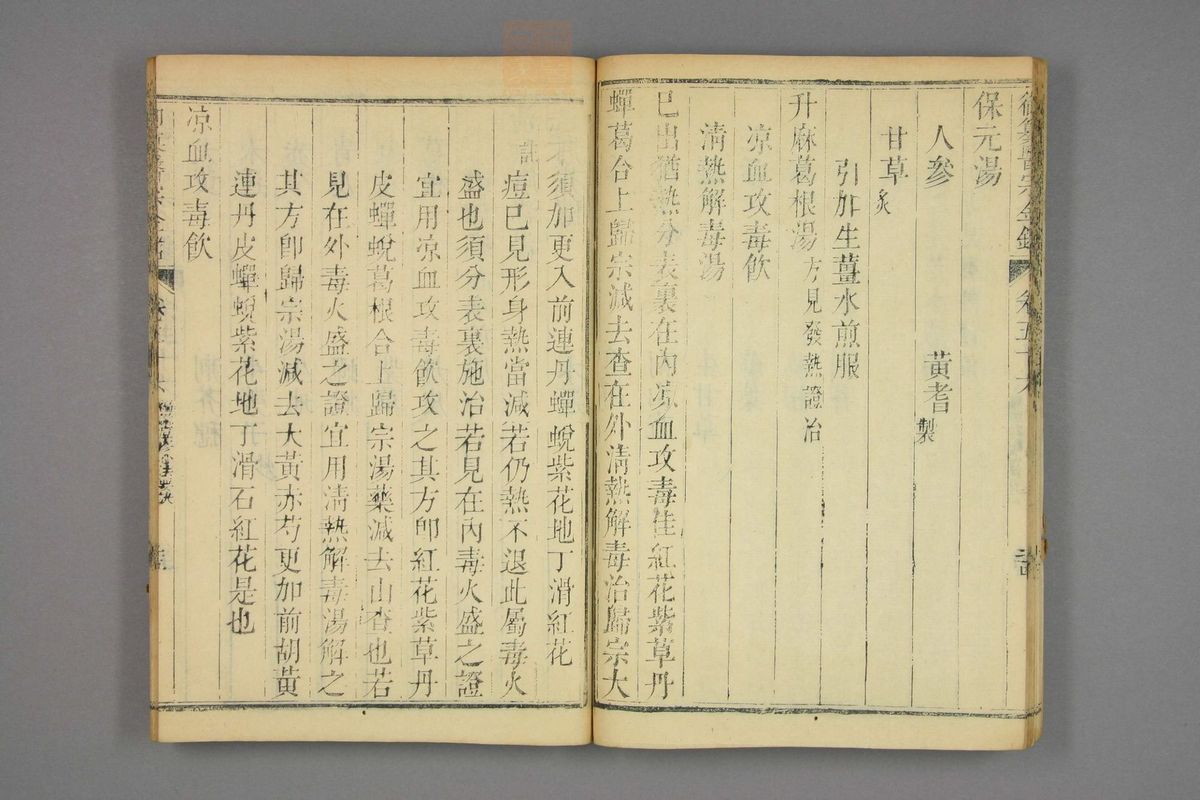 御纂醫宗金鑑 卷五十六
保元湯
人參 黃耆 製
甘草 炙
引加生薑水煎服
升麻葛根湯 方見發熱證治
凉血攻毒飲
清熱解毒湯
已出猶熱分表裏在內凉血攻毒佳紅花紫草丹
蟬葛合上歸宗減去查在外清熱解毒治歸宗大
赤不須加更入前連丹蟬蛻紫花地丁滑紅花
註 痘已見形身熱當減若仍熱不退此屬毒火
盛也須分表裏施治若見在內毒火盛之證
宜用凉血攻毒飲攻之其方卽紅花紫草丹
皮蟬蛻葛根合上歸宗湯藥減去山查也若
見在外毒火盛之證宜用清熱解毒湯解之
其方卽歸宗湯減去大黃赤芍更加前胡黃
連丹皮蟬蛻紫花地丁滑石紅花是也
凉血攻毒飲